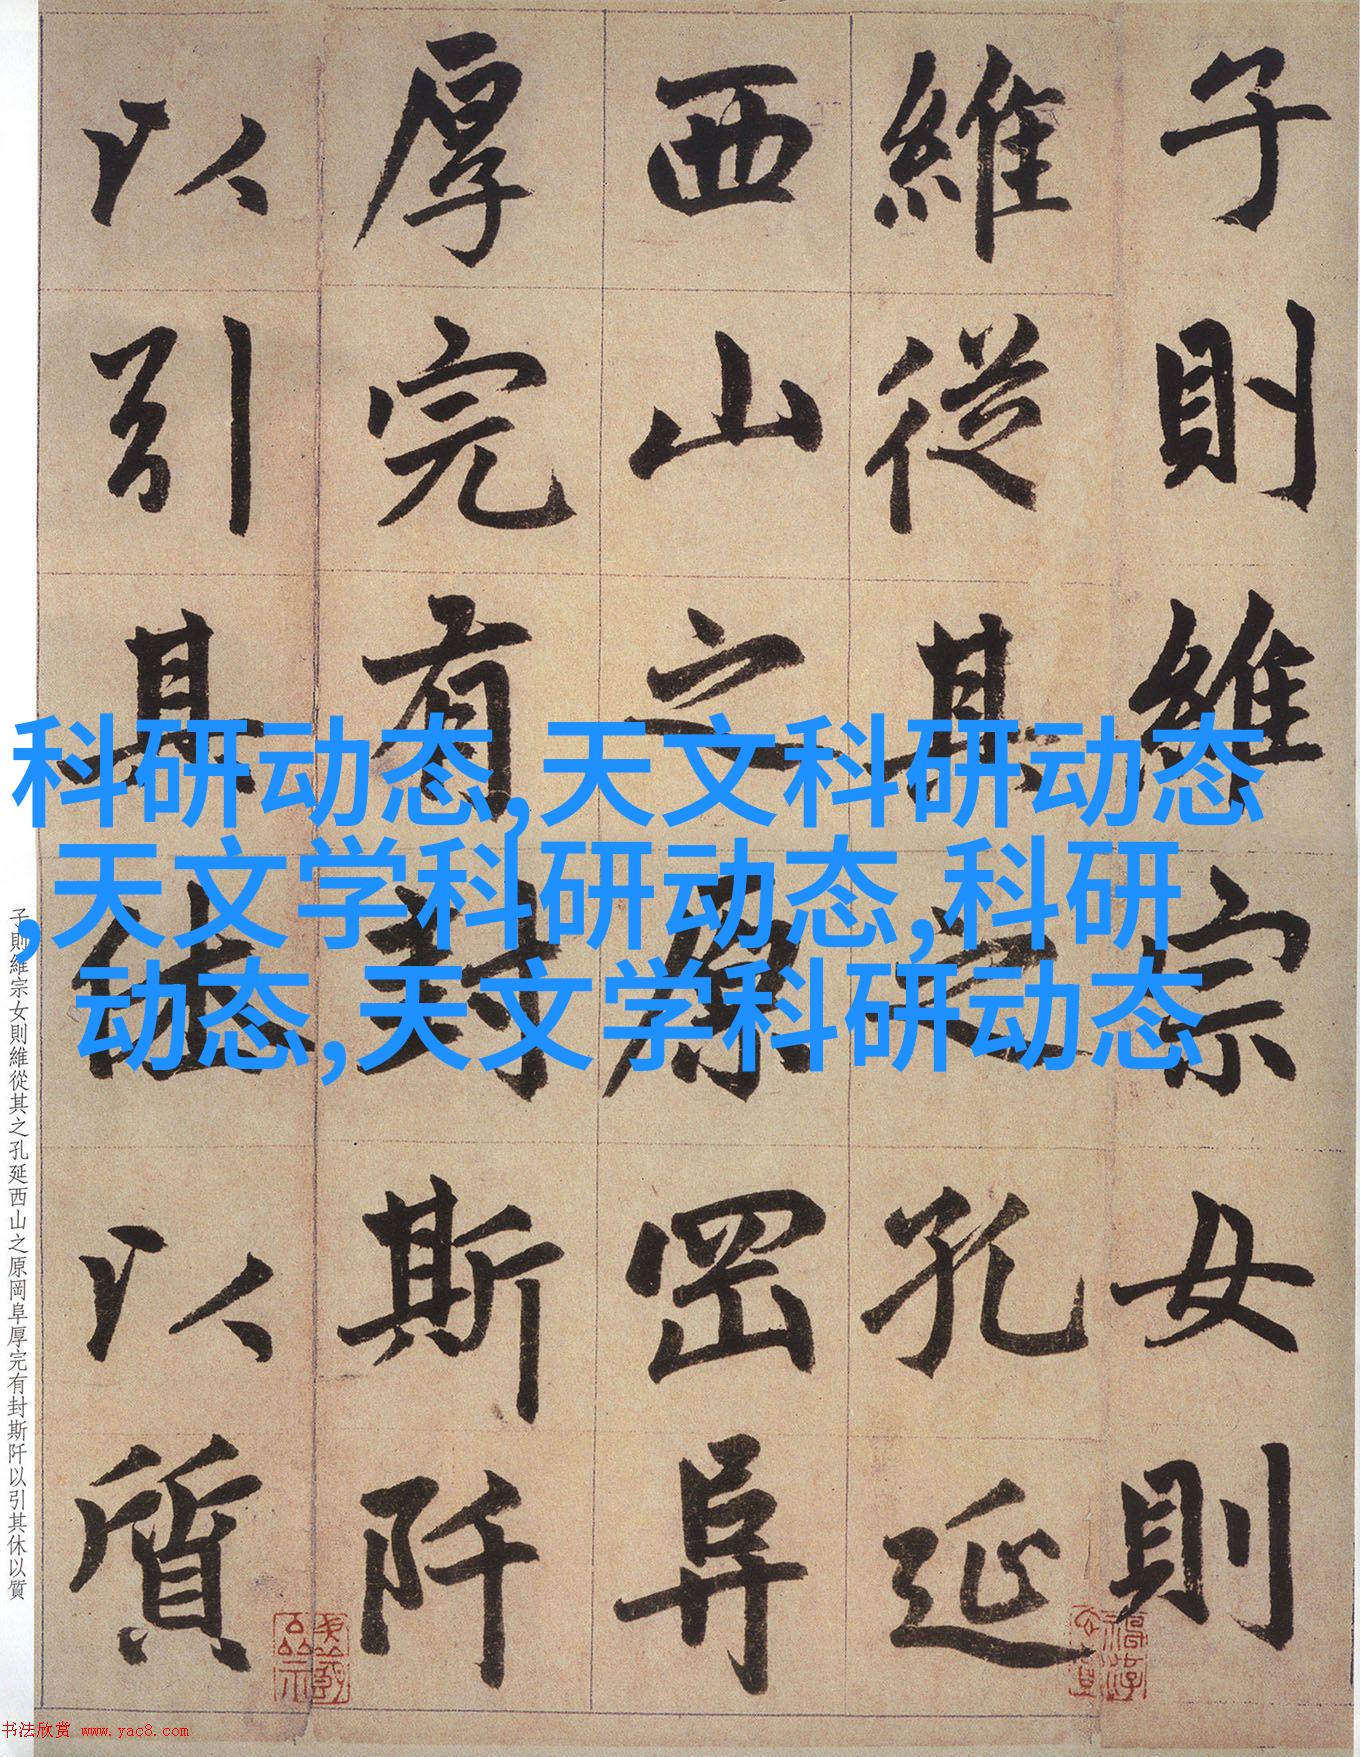 子則維宗女則
維從其之孔延
西山之原岡阜
厚完有封斯阡
以引其休以質
科研动态,天文科研动态
,天文学科研动态,科研
动态,天文学科研动态
子則維宗女則維從其之孔延西山之原岡阜厚完有封斯阡以引其休以質
书法欣赏 www.yac8.com